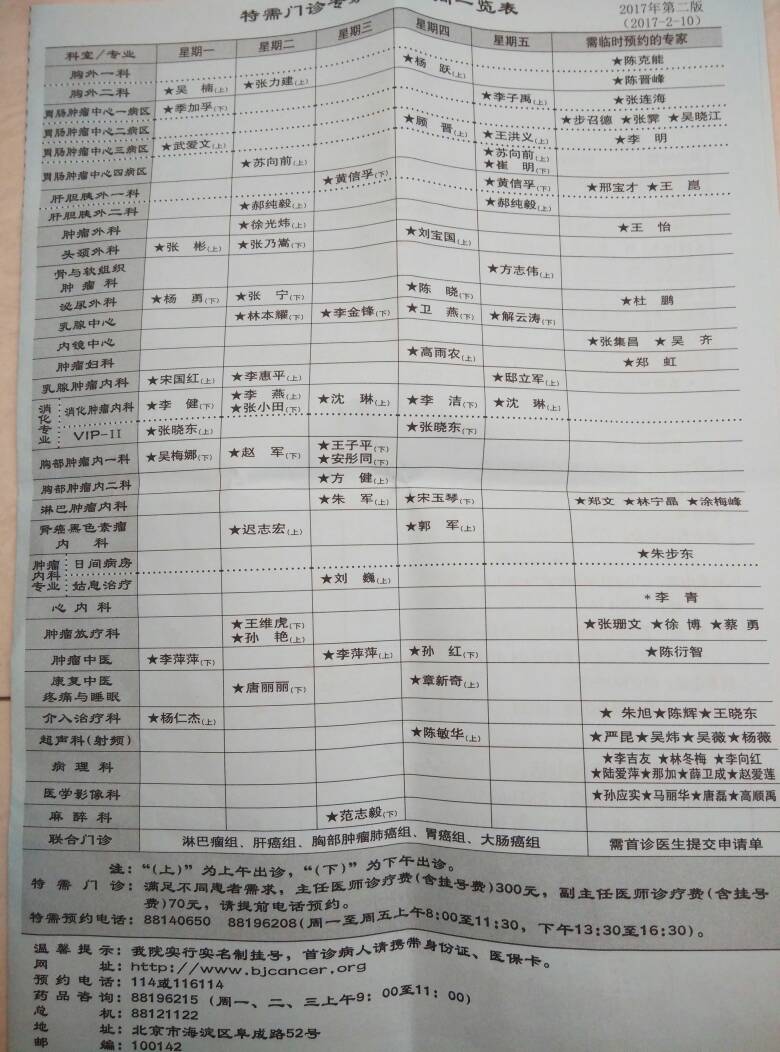 特需门诊专 一览表
2017年第二版
(2017-2-10)
科室/专业 星期一 星期二 星期三 星期四 星期五 需临时预约的专家
胸外一科 ★杨 跃(上) ★陈克能
胸外二科 ★吴 楠(上) ★张力建(上) ★陈晋峰
胃肠肿瘤中心一病区 ★季加孚(下) ★李子禹(上) ★张连海
胃肠肿瘤中心二病区 ★步召德 ★张霁 ★吴晓江
胃肠肿瘤中心三病区 ★武爱文(上) ★顾 晋(上) ★王洪义(上) ★李 明
胃肠肿瘤中心四病区 ★苏向前(上) ★苏向前(上)
★崔 明(下)
肝胆胰外一科 ★黄信孚(下) ★黄信孚(下) ★邢宝才 ★王 崑
肝胆胰外二科 ★郝纯毅(上) ★郝纯毅(上)
肿瘤外科 ★徐光炜(上) ★王 怡
头颈外科 ★张 彬(上) ★张乃嵩(下) ★刘宝国(上)
骨与软组织
肿 瘤 科 ★方志伟(上)
泌尿外科 ★杨 勇(下) ★张 宁(下) ★陈 晓(下) ★杜 鹏
乳腺中心 ★林本耀(下) ★李金锋(下) ★卫 燕(下) ★解云涛(下)
内镜中心 ★张集昌 ★吴 齐
肿瘤妇科 ★高雨农(上) ★郑 虹
乳腺肿瘤内科 ★宋国红(上) ★李惠平(上) ★邸立军(上)
消化专业 消化肿瘤内科 ★李 健(下) ★李 燕(上) ★沈 琳(上) ★李 洁(下) ★沈 琳(上)
★张小田(下)
VIP-II ★张晓东(上) ★张晓东(下)
胸部肿瘤内一科 ★吴梅娜(下) ★赵 军(下) ★王子平(下)
★安彤同(下)
胸部肿瘤内二科 ★方 健(上)
淋巴肿瘤内科 ★朱 军(上) ★宋玉琴(下) ★郑文 ★林宁晶 ★涂梅峰
肾癌黑色素瘤
内 科 ★迟志宏(上) ★郭 军(上)
肿瘤内科专业 日间病房 ★朱步东
姑息治疗 ★刘 巍(上)
心 内 科 *李 青
肿瘤放疗科 ★王维虎(下) ★张珊文 ★徐 博 ★蔡 勇
★孙 艳(上)
肿瘤中医 ★李萍萍(下) ★李萍萍(上) ★孙 红(下) ★陈衍智
康复中医
疼痛与睡眠 ★唐丽丽(下) ★章新奇(上)
介入治疗科 ★杨仁杰(上) ★ 朱旭★陈辉★王晓东
超声科(射频) ★陈敏华(上) ★严昆★吴炜★吴薇★杨薇
病 理 科 ★李吉友 ★林冬梅 ★李向红
★陆爱萍★那加★薛卫成★赵爱莲
医学影像科 ★孙应实★马丽华★唐磊★高顺禹
麻 醉 科 ★范志毅(下)
联合门诊 淋巴瘤组、肝癌组、胸部肿瘤肺癌组、胃癌组、大肠癌组 需首诊医生提交申请单
注:“(上)”为上午出诊,“(下)”为下午出诊。
特 需 门 诊:满足不同患者需求,主任医师诊疗费(含挂号费)300元,副主任医师诊疗费(含挂号
费)70元,请提前电话预约。
特需预约电话:88140650 88196208(周一至周五上午8:00至11:30,下午13:30至16:30)。
温 馨 提 示:我院实行实名制挂号,首诊病人请携带身份证、医保卡。
网 址:http://www.bjcancer.org
预 约 电 话:114或116114
药 品 咨 询:88196215(周一、二、三上午9:00至11:00)
总 机:88121122
地 址:北京市海淀区阜成路52号
邮 编:100142